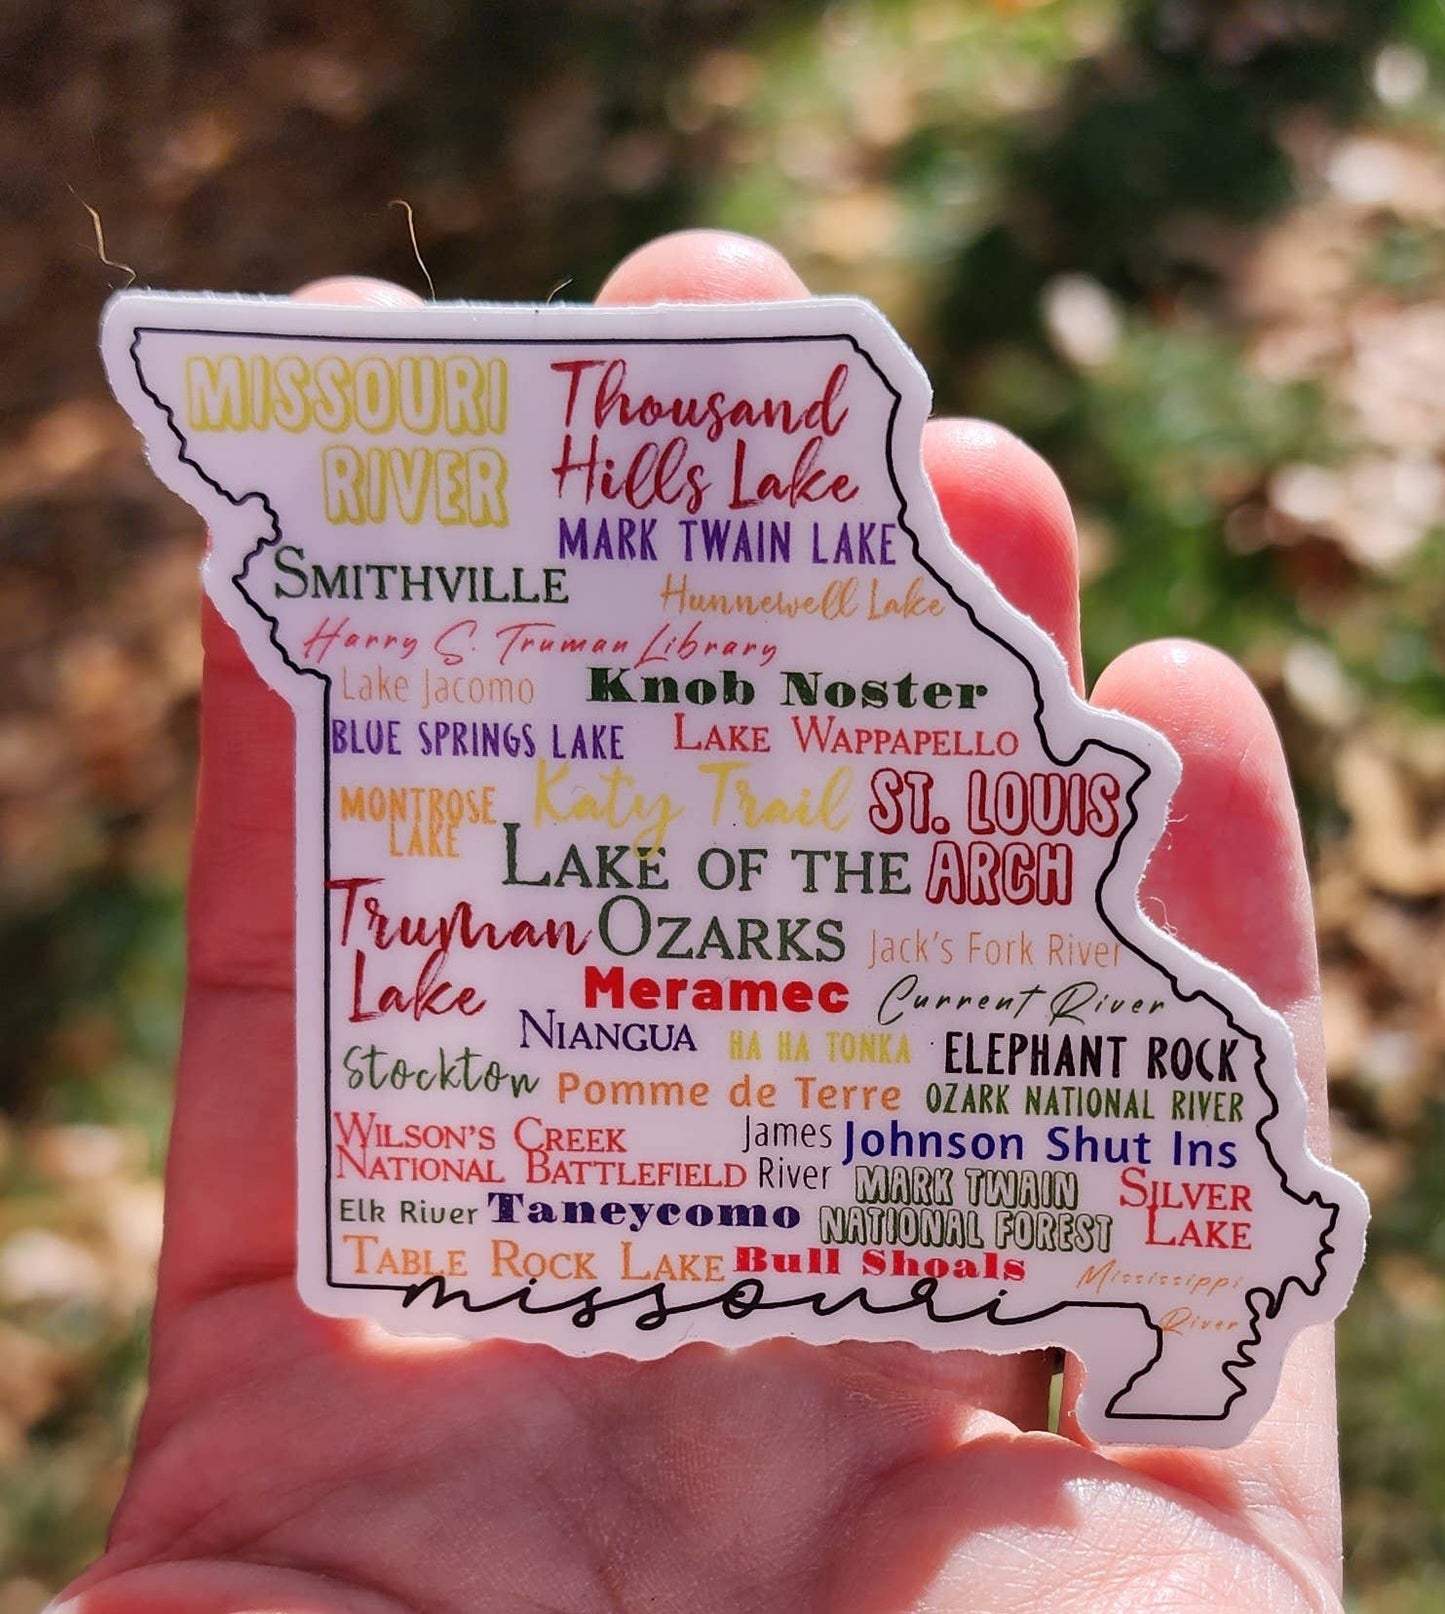 MISSOURI
RIVER
Thousand
Hills Lake
MARK TWAIN LAKE
SMITHVILLE
Hunnewell Lake
Harry S. Truman Library
Lake Jacomo
Knob Noster
BLUE SPRINGS LAKE
LAKE WAPPAPELLO
MONTROSE
LAKE
Katy Trail
ST. LOUIS
ARCH
LAKE OF THE
OZARKS
Truman
Lake
Jack's Fork River
Meramec
Current River
NIANGUA
HA HA TONKA
ELEPHANT ROCK
Stockton
Pomme de Terre
OZARK NATIONAL RIVER
WILSON'S CREEK
NATIONAL BATTLEFIELD
James
River
Johnson Shut Ins
MARK TWAIN
NATIONAL FOREST
SILVER
LAKE
Elk River
Taneycomo
TABLE ROCK LAKE
Bull Shoals
Mississippi
River
missouri